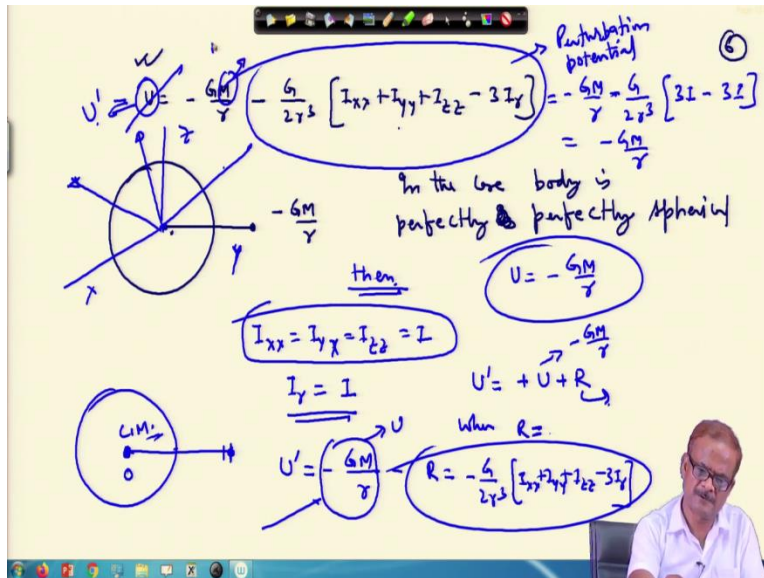 Perturbation
potential
6
U' = U = - GM/r - G/2r³ [Ixx + Iyy + Izz - 3Ir] = - GM/r - G/2r³ [3I - 3I]
= - GM/r
Z
x
y
- GM/r
In the case body is
perfectly perfectly spherical
then
U = - GM/r
Ixx = Iyy = Izz = I
- GM/r
Ir = I
U' = + U + R
C.M.
O
U
when R =
U' = - GM/r -
R = - G/2r³ [Ixx + Iyy + Izz - 3Ir]